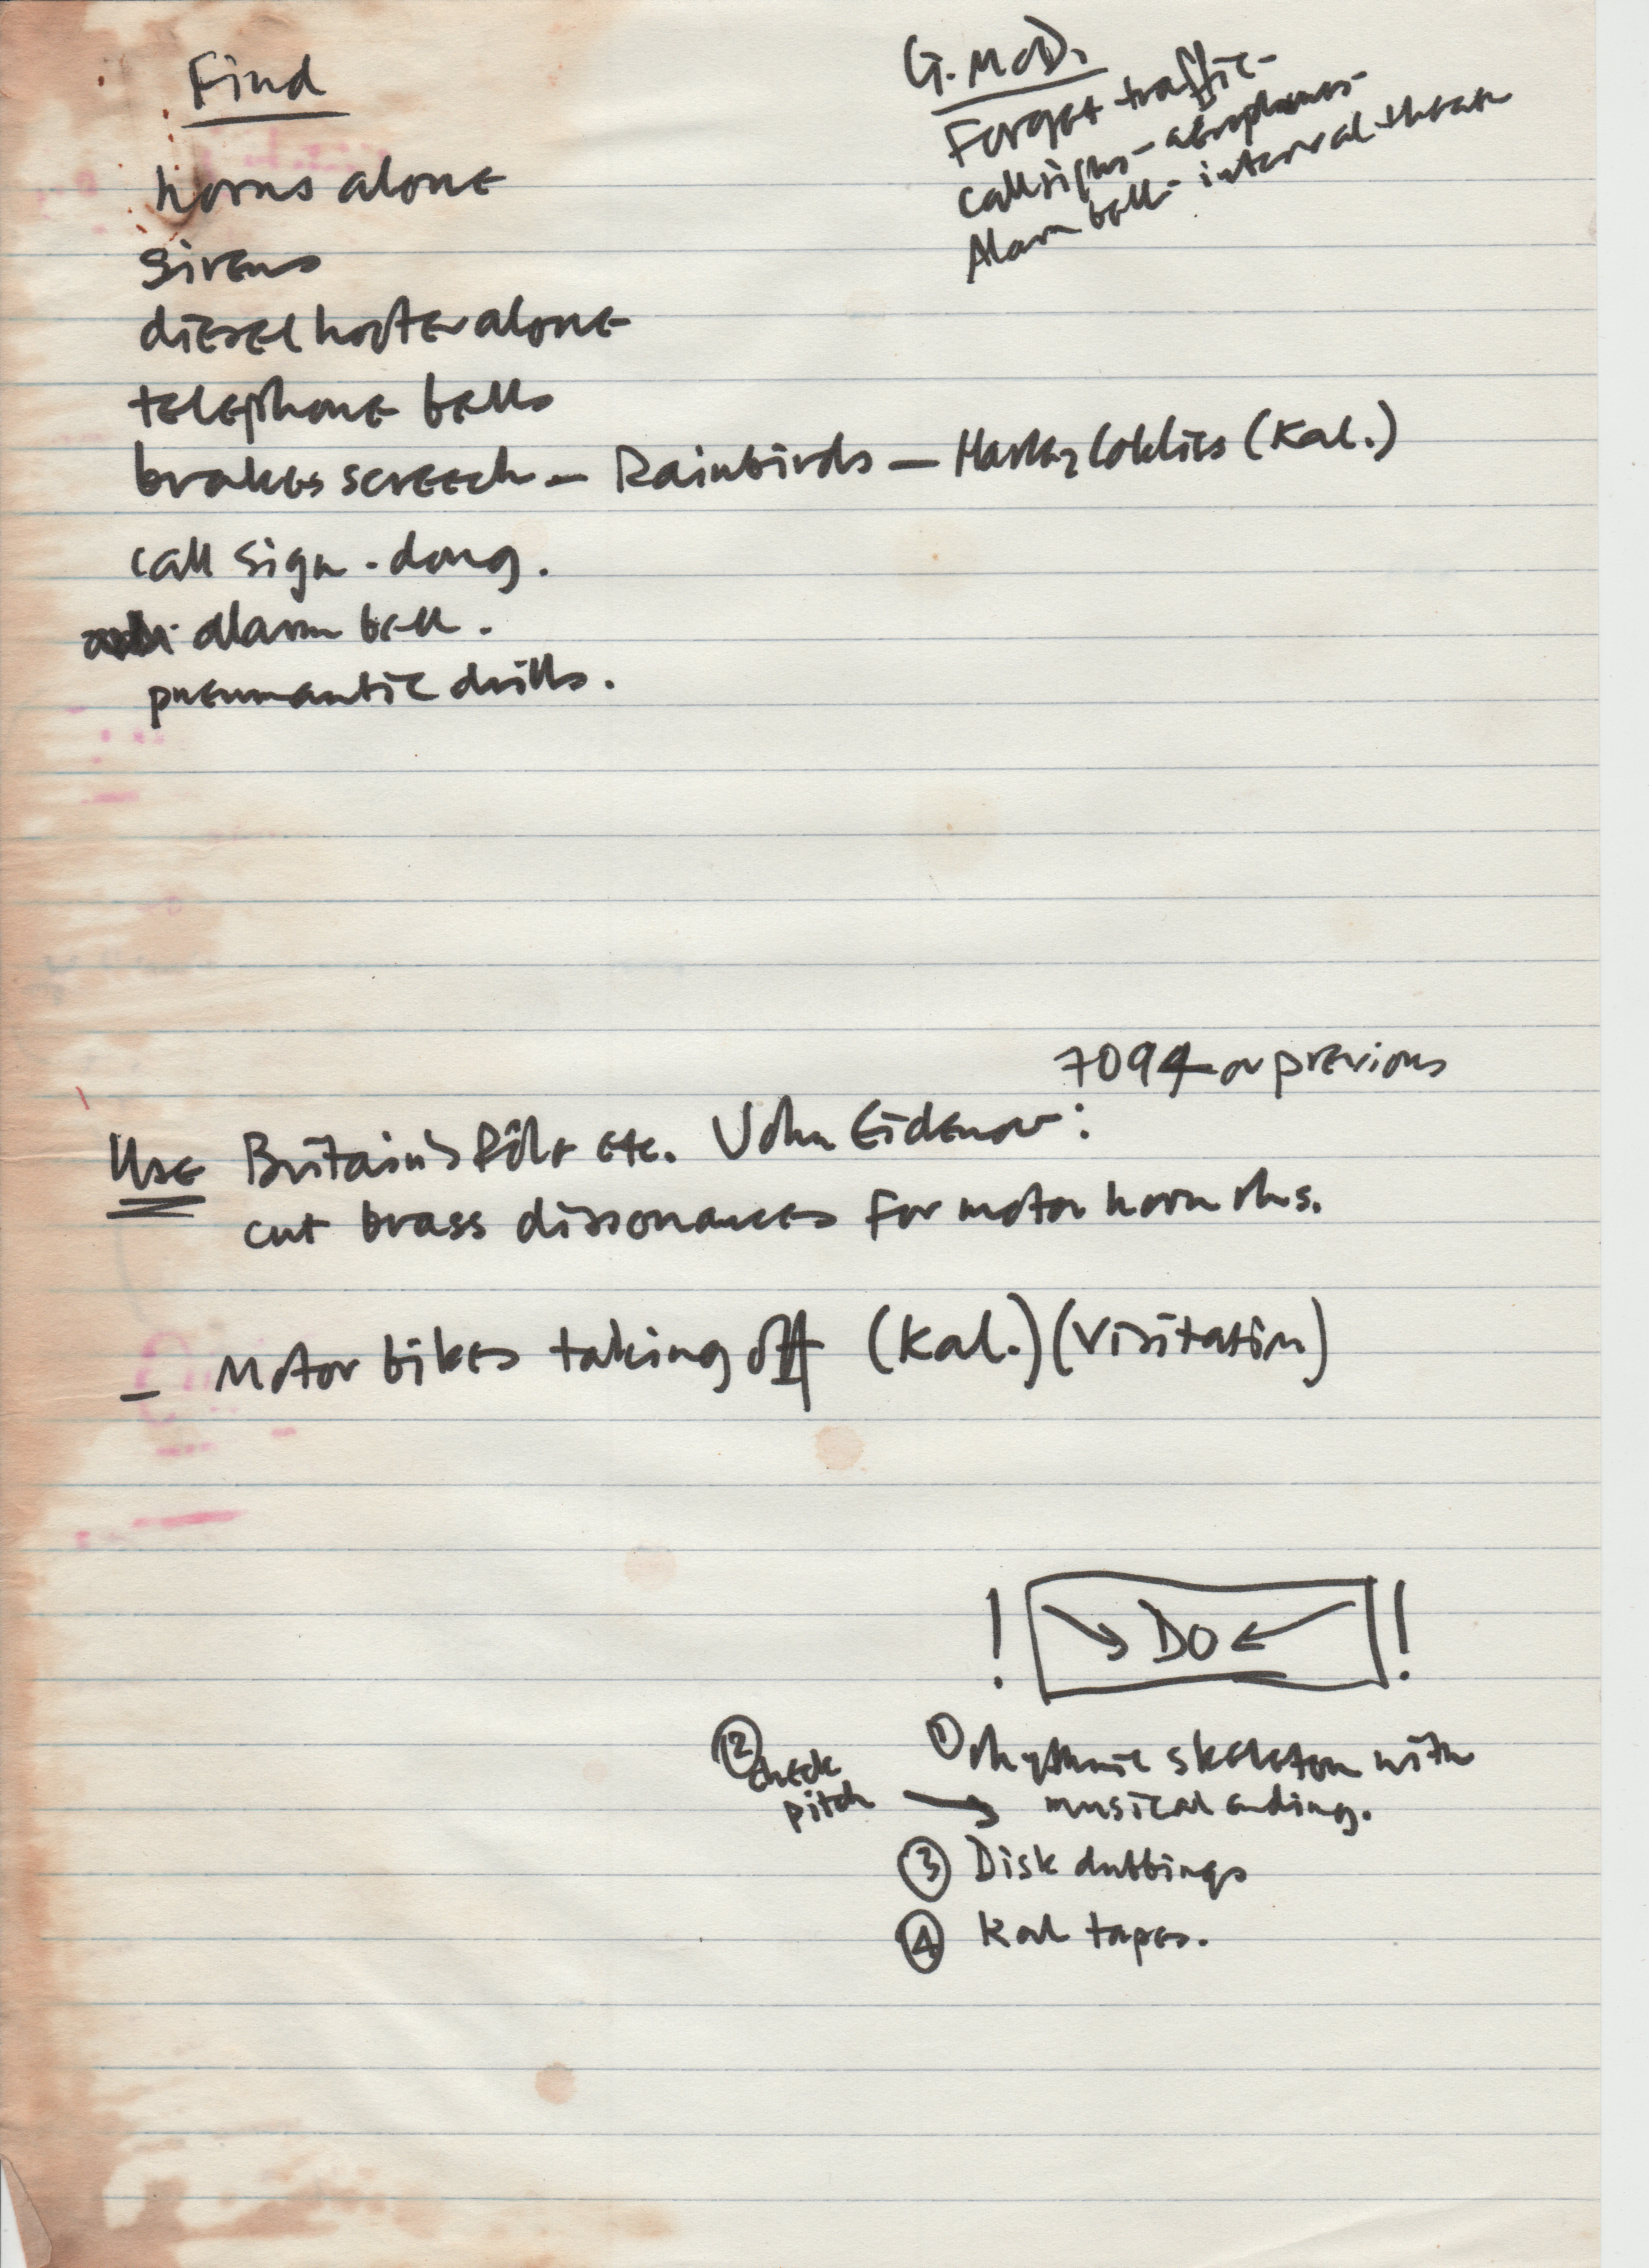 Find
horns alone
sirens
diesel hooter alone
telephone bells
brakes screech – Rainbirds – (Kal.)
call sign - dong.
alarm bell.
pneumantic drills.
G. McD.
Forget traffic -
call signs - aeroplanes -
Alarm bell - interval theatre
7094 or previous
Use Britain's Rôle etc. John Eidenow:
cut brass dissonances for motor horn rhs.
– Motor bikes taking off (Kal.) (Visitation)
! → DO ← !
① rhythmic skeleton with
musical ending.
② check
pitch →
③ Disk dubbings
④ Kal tapes.